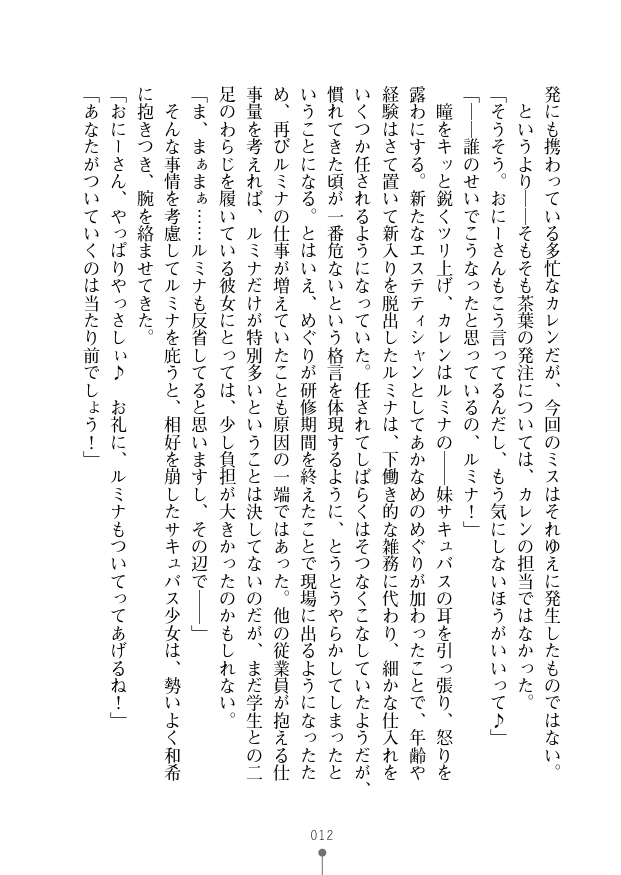 発にも携わっている多忙なカレンだが、今回のミスはそれゆえに発生したものではない。
というより――そもそも茶葉の発注については、カレンの担当ではなかった。
「そうそう。おにーさんもこう言ってるんだし、もう気にしないほうがいいって♪」
「――誰のせいでこうなったと思っているの、ルミナ！」
瞳をキッと鋭くツリ上げ、カレンはルミナの――妹サキュバスの耳を引っ張り、怒りを
露わにする。新たなエステティシャンとしてあかなめのめぐりが加わったことで、年齢や
経験はさて置いて新入りを脱出したルミナは、下働き的な雑務に代わり、細かな仕入れを
いくつか任されるようになっていた。任されてしばらくはそつなくこなしていたようだが、
慣れてきた頃が一番危ないという格言を体現するように、とうとうやらかしてしまったと
いうことになる。とはいえ、めぐりが研修期間を終えたことで現場に出るようになったた
め、再びルミナの仕事が増えていたことも原因の一端ではあった。他の従業員が抱える仕
事量を考えれば、ルミナだけが特別多いということは決してないのだが、まだ学生との二
足のわらじを履いている彼女にとっては、少し負担が大きかったのかもしれない。
「ま、まぁまぁ……ルミナも反省してると思いますし、その辺で――」
そんな事情を考慮してルミナを庇うと、相好を崩したサキュバス少女は、勢いよく和希
に抱きつき、腕を絡ませてきた。
「おにーさん、やっぱりやっさしぃ♪　お礼に、ルミナもついてってあげるね！」
「あなたがついていくのは当たり前でしょう！」
012